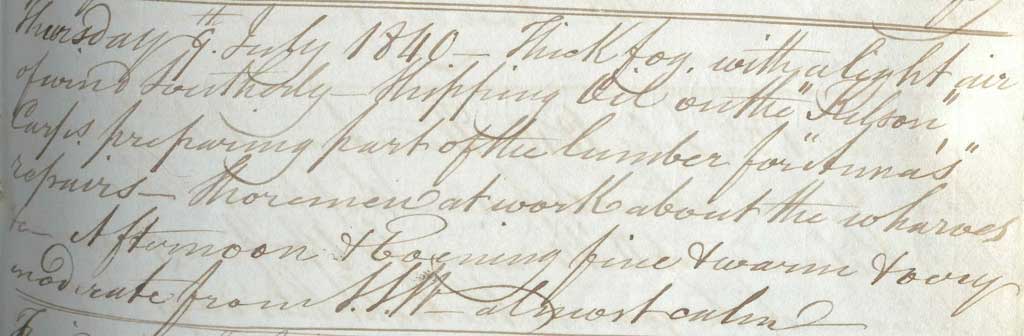 Thursday 9th. July 1840 — Thick fog, with a light air
of wind Southerly — Shipping Oil on the "Filson"
Carps. preparing part of the lumber for "Anna's"
repairs — Shoremen at work about the wharves
&c — Afternoon & Evening fine & warm & very
moderate from S.S.W — almost calm